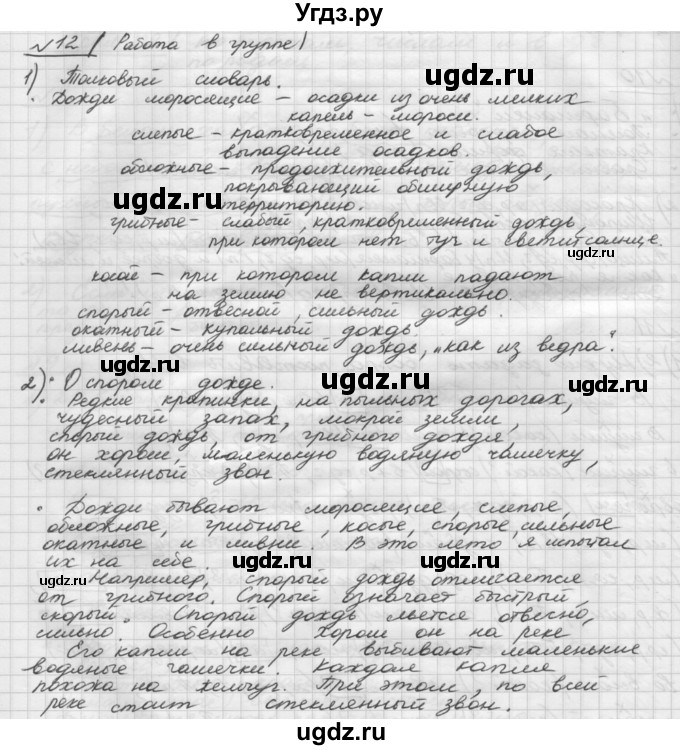 Угдз.ру
№12 (Работа в группе)
1) Толковый словарь.
• Дожди моросящие – осадки из очень мелких
капель – мороси.
слепые – кратковременное и слабое
выпадение осадков.
обложные – продолжительный дождь,
покрывающий обширную
территорию.
грибные – слабый, кратковременный дождь,
при котором нет туч и светит солнце.
косой – при котором капли падают
на землю не вертикально.
спорый – отвесной, сильный дождь.
окатный – купальный дождь.
ливень – очень сильный дождь, "как из ведра".
2) • О спором дожде.
• Редкие крапинки, на пыльных дорогах,
чудесный запах, мокрой земли,
спорый дождь, от грибного дождя,
он хорош, маленькую водяную чашечку,
стеклянный звон.
• Дожди бывают моросящие, слепые,
обложные, грибные, косые, спорые, сильные
окатные и ливни. В это лето я испытал
их на себе.
Например, спорый дождь отличается
от грибного. Спорый означает быстрый,
скорый. Спорый дождь льется отвесно,
сильно. Особенно хорош он на реке
Его капли на реке выбивают маленькие
водяные чашечки. Каждая капля
похожа на жемчуг. При этом, по всей
реке стоит стеклянный звон.
ugdz.ru
ugdz.ru
ugdz.ru
ugdz.ru
ugdz.ru
ugdz.ru
ugdz.ru
ugdz.ru
ugdz.ru
ugdz.ru
ugdz.ru
ugdz.ru
ugdz.ru
ugdz.ru